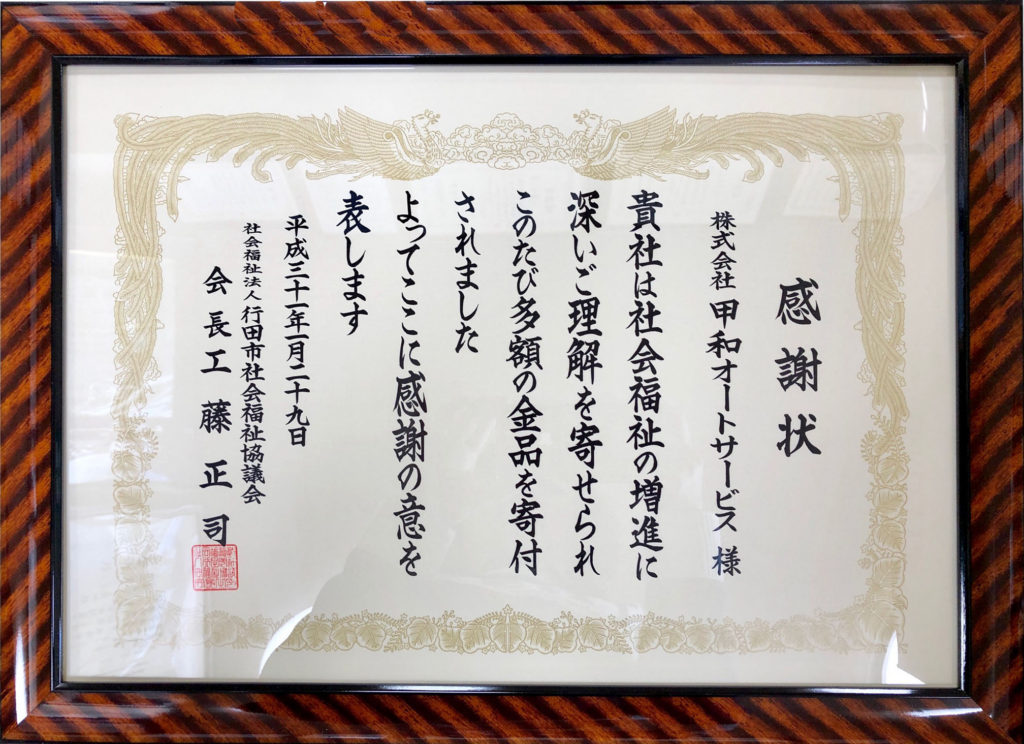 感謝状
株式会社 甲和オートサービス 様
貴社は社会福祉の増進に
深いご理解を寄せられ
このたび多額の金品を寄付
されました
よってここに感謝の意を
表します
平成三十一年一月二十九日
社会福祉法人 行田市社会福祉協議会
会長 工藤正司